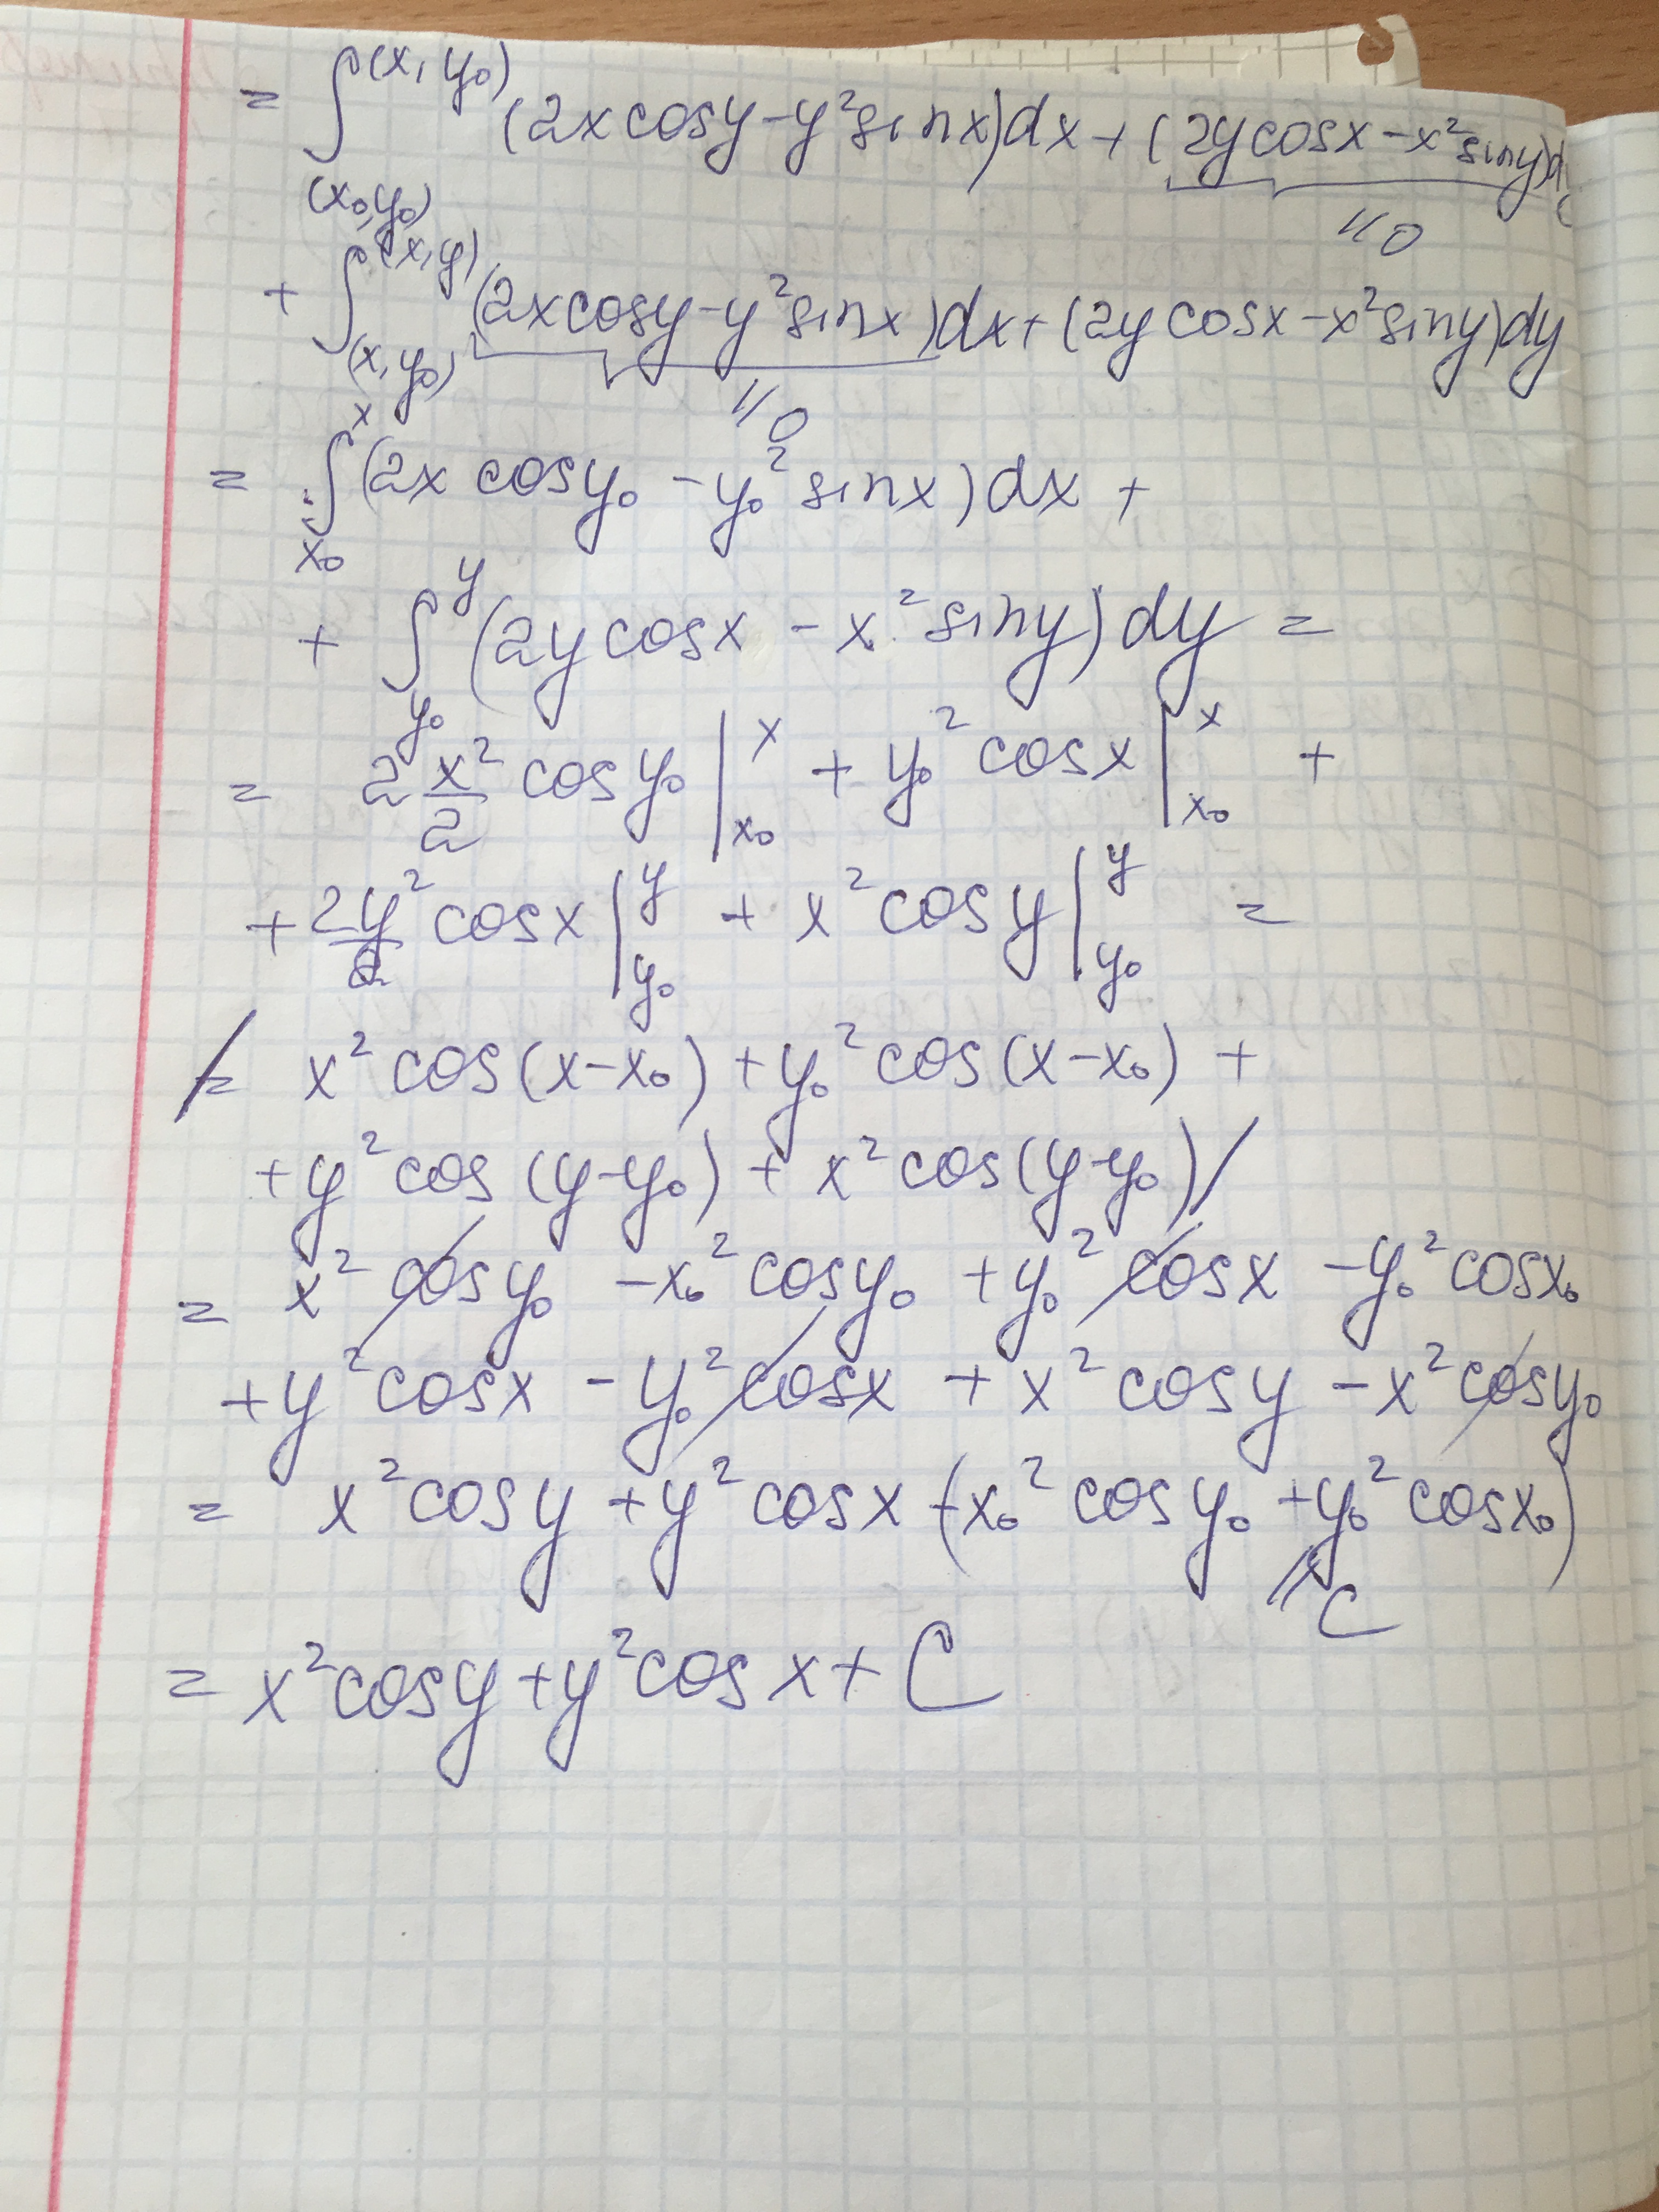 = ∫_(x₀,y₀)^(x,y₀) (2x cosy − y² sinx)dx + (2y cosx − x² siny)dy
"0
+ ∫_(x,y₀)^(x,y) (2x cosy − y² sinx)dx + (2y cosx − x² siny)dy
"0
= ∫_x₀^x (2x cosy₀ − y₀² sinx)dx +
+ ∫_y₀^y (2y cosx − x² siny)dy =
= 2 x²/2 cosy₀ |_x₀^x + y₀² cosx |_x₀^x +
+ 2y²/2 cosx |_y₀^y + x² cosy |_y₀^y =
/= x² cos(x−x₀) + y₀² cos(x−x₀) +
+ y² cos(y−y₀) + x² cos(y−y₀)/
= x² cosy₀ − x₀² cosy₀ + y₀² cosx − y₀² cosx₀
+ y² cosx − y₀² cosx + x² cosy − x² cosy₀
= x² cosy + y² cosx (−x₀² cosy₀ + y₀² cosx₀)
"C
= x² cosy + y² cosx + C